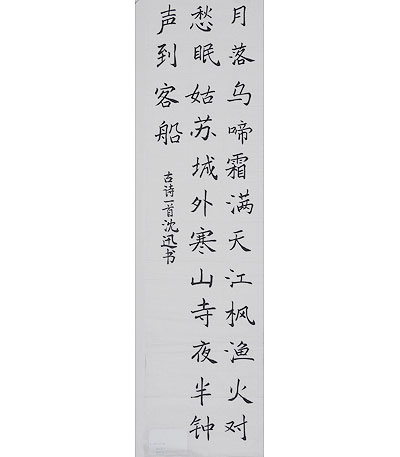 月落乌啼霜满天江枫渔火对
愁眠姑苏城外寒山寺夜半钟
声到客船
古诗一首沈迅书